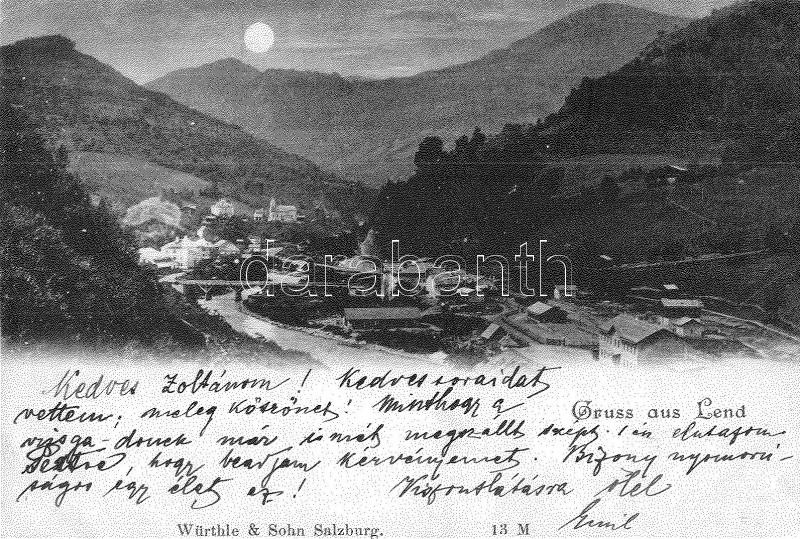 darabanth
Kedves Zoltánom! Kedves soraidat
vettem; meleg köszönet! Minthogy a
Gruss aus Lend
vizsga- már ismét megszállt szept. 1 én elutazom
Pestre, hogy beadjam kérvényemet. Bizony nyomorú-
ságos egy élet ez! Viszontlátásra ölel
Emil
Würthle & Sohn Salzburg. 13 M